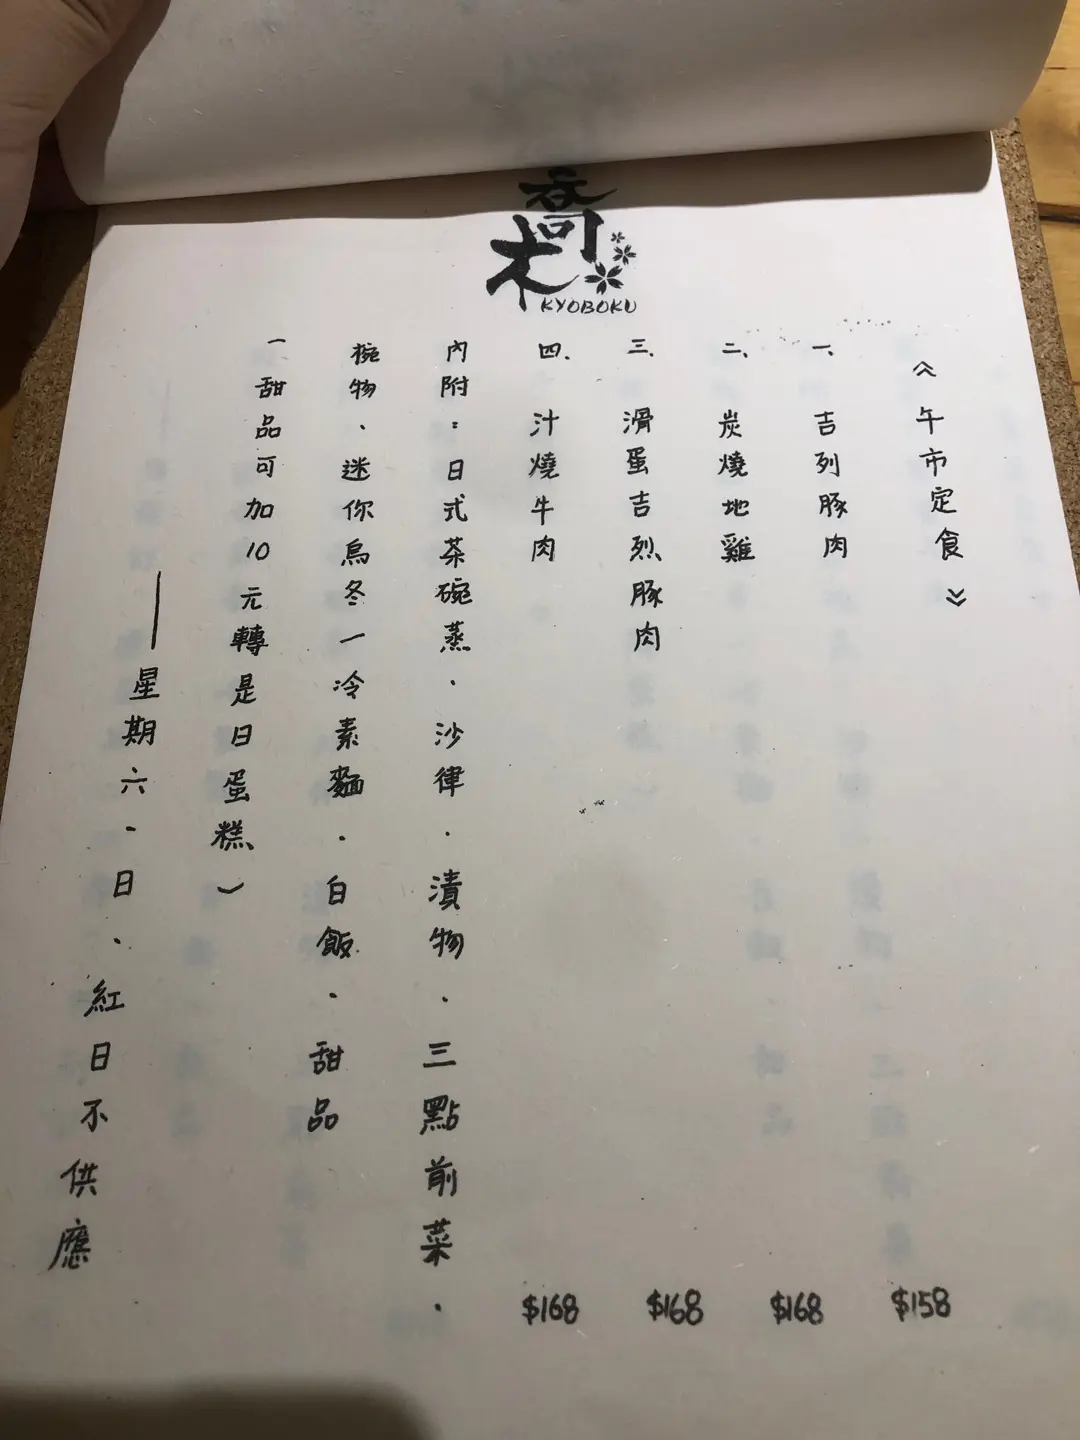 喬木
KYOBOKU
《午市定食》
一、吉列豚肉 $158
二、炭燒地雞 $168
三、滑蛋吉烈豚肉 $168
四、汁燒牛肉 $168
內附：日式茶碗蒸．沙律．漬物．三點前菜．
椀物、迷你烏冬／冷素麵．白飯．甜品
（甜品可加10元轉是日蛋糕）
——星期六．日、紅日不供應